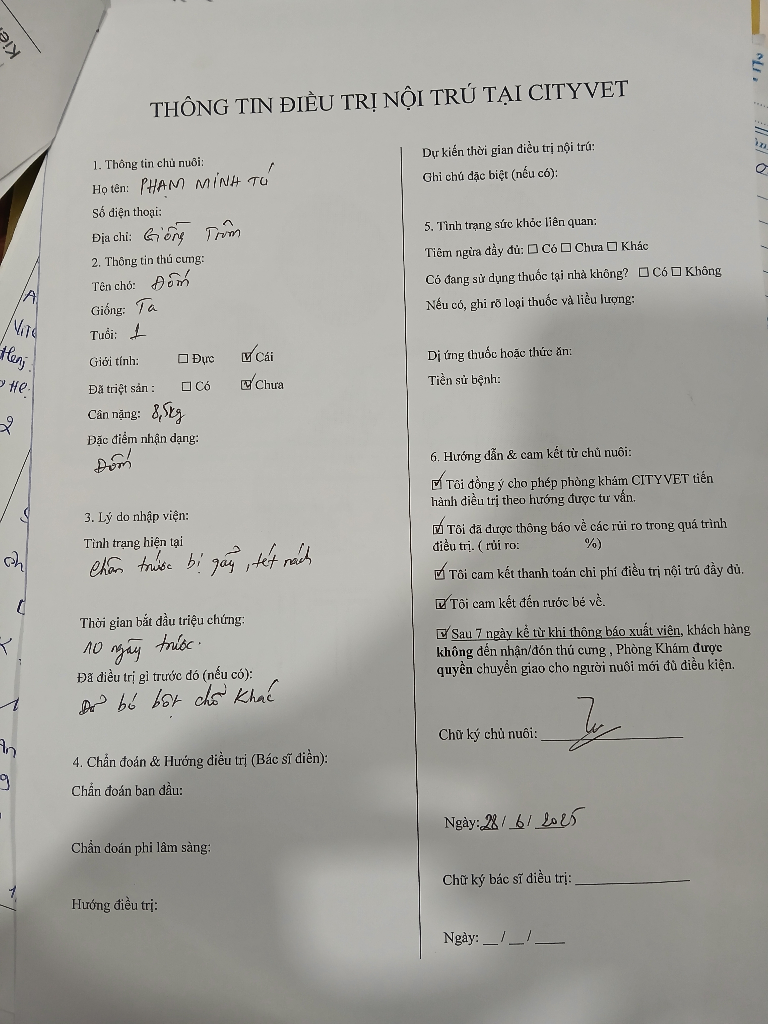 THÔNG TIN ĐIỀU TRỊ NỘI TRÚ TẠI CITYVET
1. Thông tin chủ nuôi:
Họ tên: PHẠM MINH TÚ
Số điện thoại:
Địa chỉ: Giồng Trôm
2. Thông tin thú cưng:
Tên chó: Đốm
Giống: Ta
Tuổi: 1
Giới tính: ☐ Đực ☑ Cái
Đã triệt sản : ☐ Có ☑ Chưa
Cân nặng: 8,5kg
Đặc điểm nhận dạng:
Đốm
3. Lý do nhập viện:
Tình trạng hiện tại
Chân trước bị gãy, tét nách
Thời gian bắt đầu triệu chứng:
10 ngày trước.
Đã điều trị gì trước đó (nếu có):
bó bột chỗ khác
4. Chẩn đoán & Hướng điều trị (Bác sĩ điền):
Chẩn đoán ban đầu:
Chẩn đoán phi lâm sàng:
Hướng điều trị:
Dự kiến thời gian điều trị nội trú:
Ghi chú đặc biệt (nếu có):
5. Tình trạng sức khỏe liên quan:
Tiêm ngừa đầy đủ: ☐ Có ☐ Chưa ☐ Khác
Có đang sử dụng thuốc tại nhà không? ☐ Có ☐ Không
Nếu có, ghi rõ loại thuốc và liều lượng:
Dị ứng thuốc hoặc thức ăn:
Tiền sử bệnh:
6. Hướng dẫn & cam kết từ chủ nuôi:
☑ Tôi đồng ý cho phép phòng khám CITYVET tiến
hành điều trị theo hướng được tư vấn.
☑ Tôi đã được thông báo về các rủi ro trong quá trình
điều trị. ( rủi ro: %)
☑ Tôi cam kết thanh toán chi phí điều trị nội trú đầy đủ.
☑ Tôi cam kết đến rước bé về.
☑ Sau 7 ngày kể từ khi thông báo xuất viện, khách hàng
không đến nhận/đón thú cưng , Phòng Khám được
quyền chuyển giao cho người nuôi mới đủ điều kiện.
Chữ ký chủ nuôi: ____
Ngày: 28/ 6/ 2025
Chữ ký bác sĩ điều trị: ____
Ngày: __/__/____